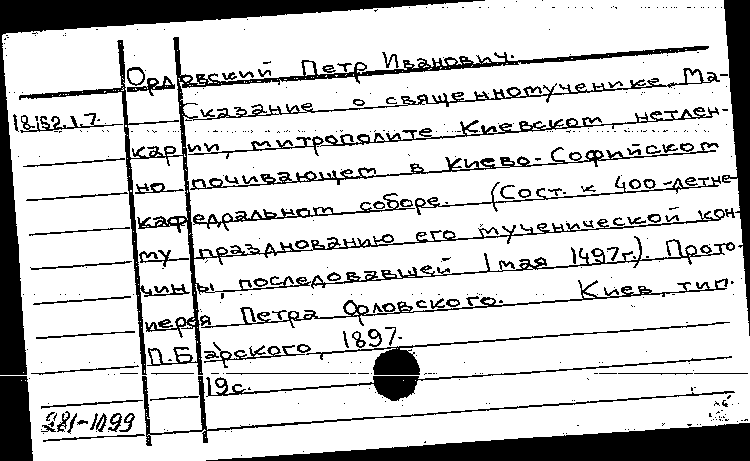 Орловский, Петр Иванович.
18.182.1.7. Сказание о священномученике Ма-
карии, митрополите Киевском, нетлен-
но почивающем в Киево-Софийском
кафедральном соборе. (Сост. к 400-летне-
му празднованию его мученической кон-
чины, последовавшей 1 мая 1497 г.). Прото-
иерея Петра Орловского. Киев, тип.
П. Барского, 1897.
19 с.
281-1099